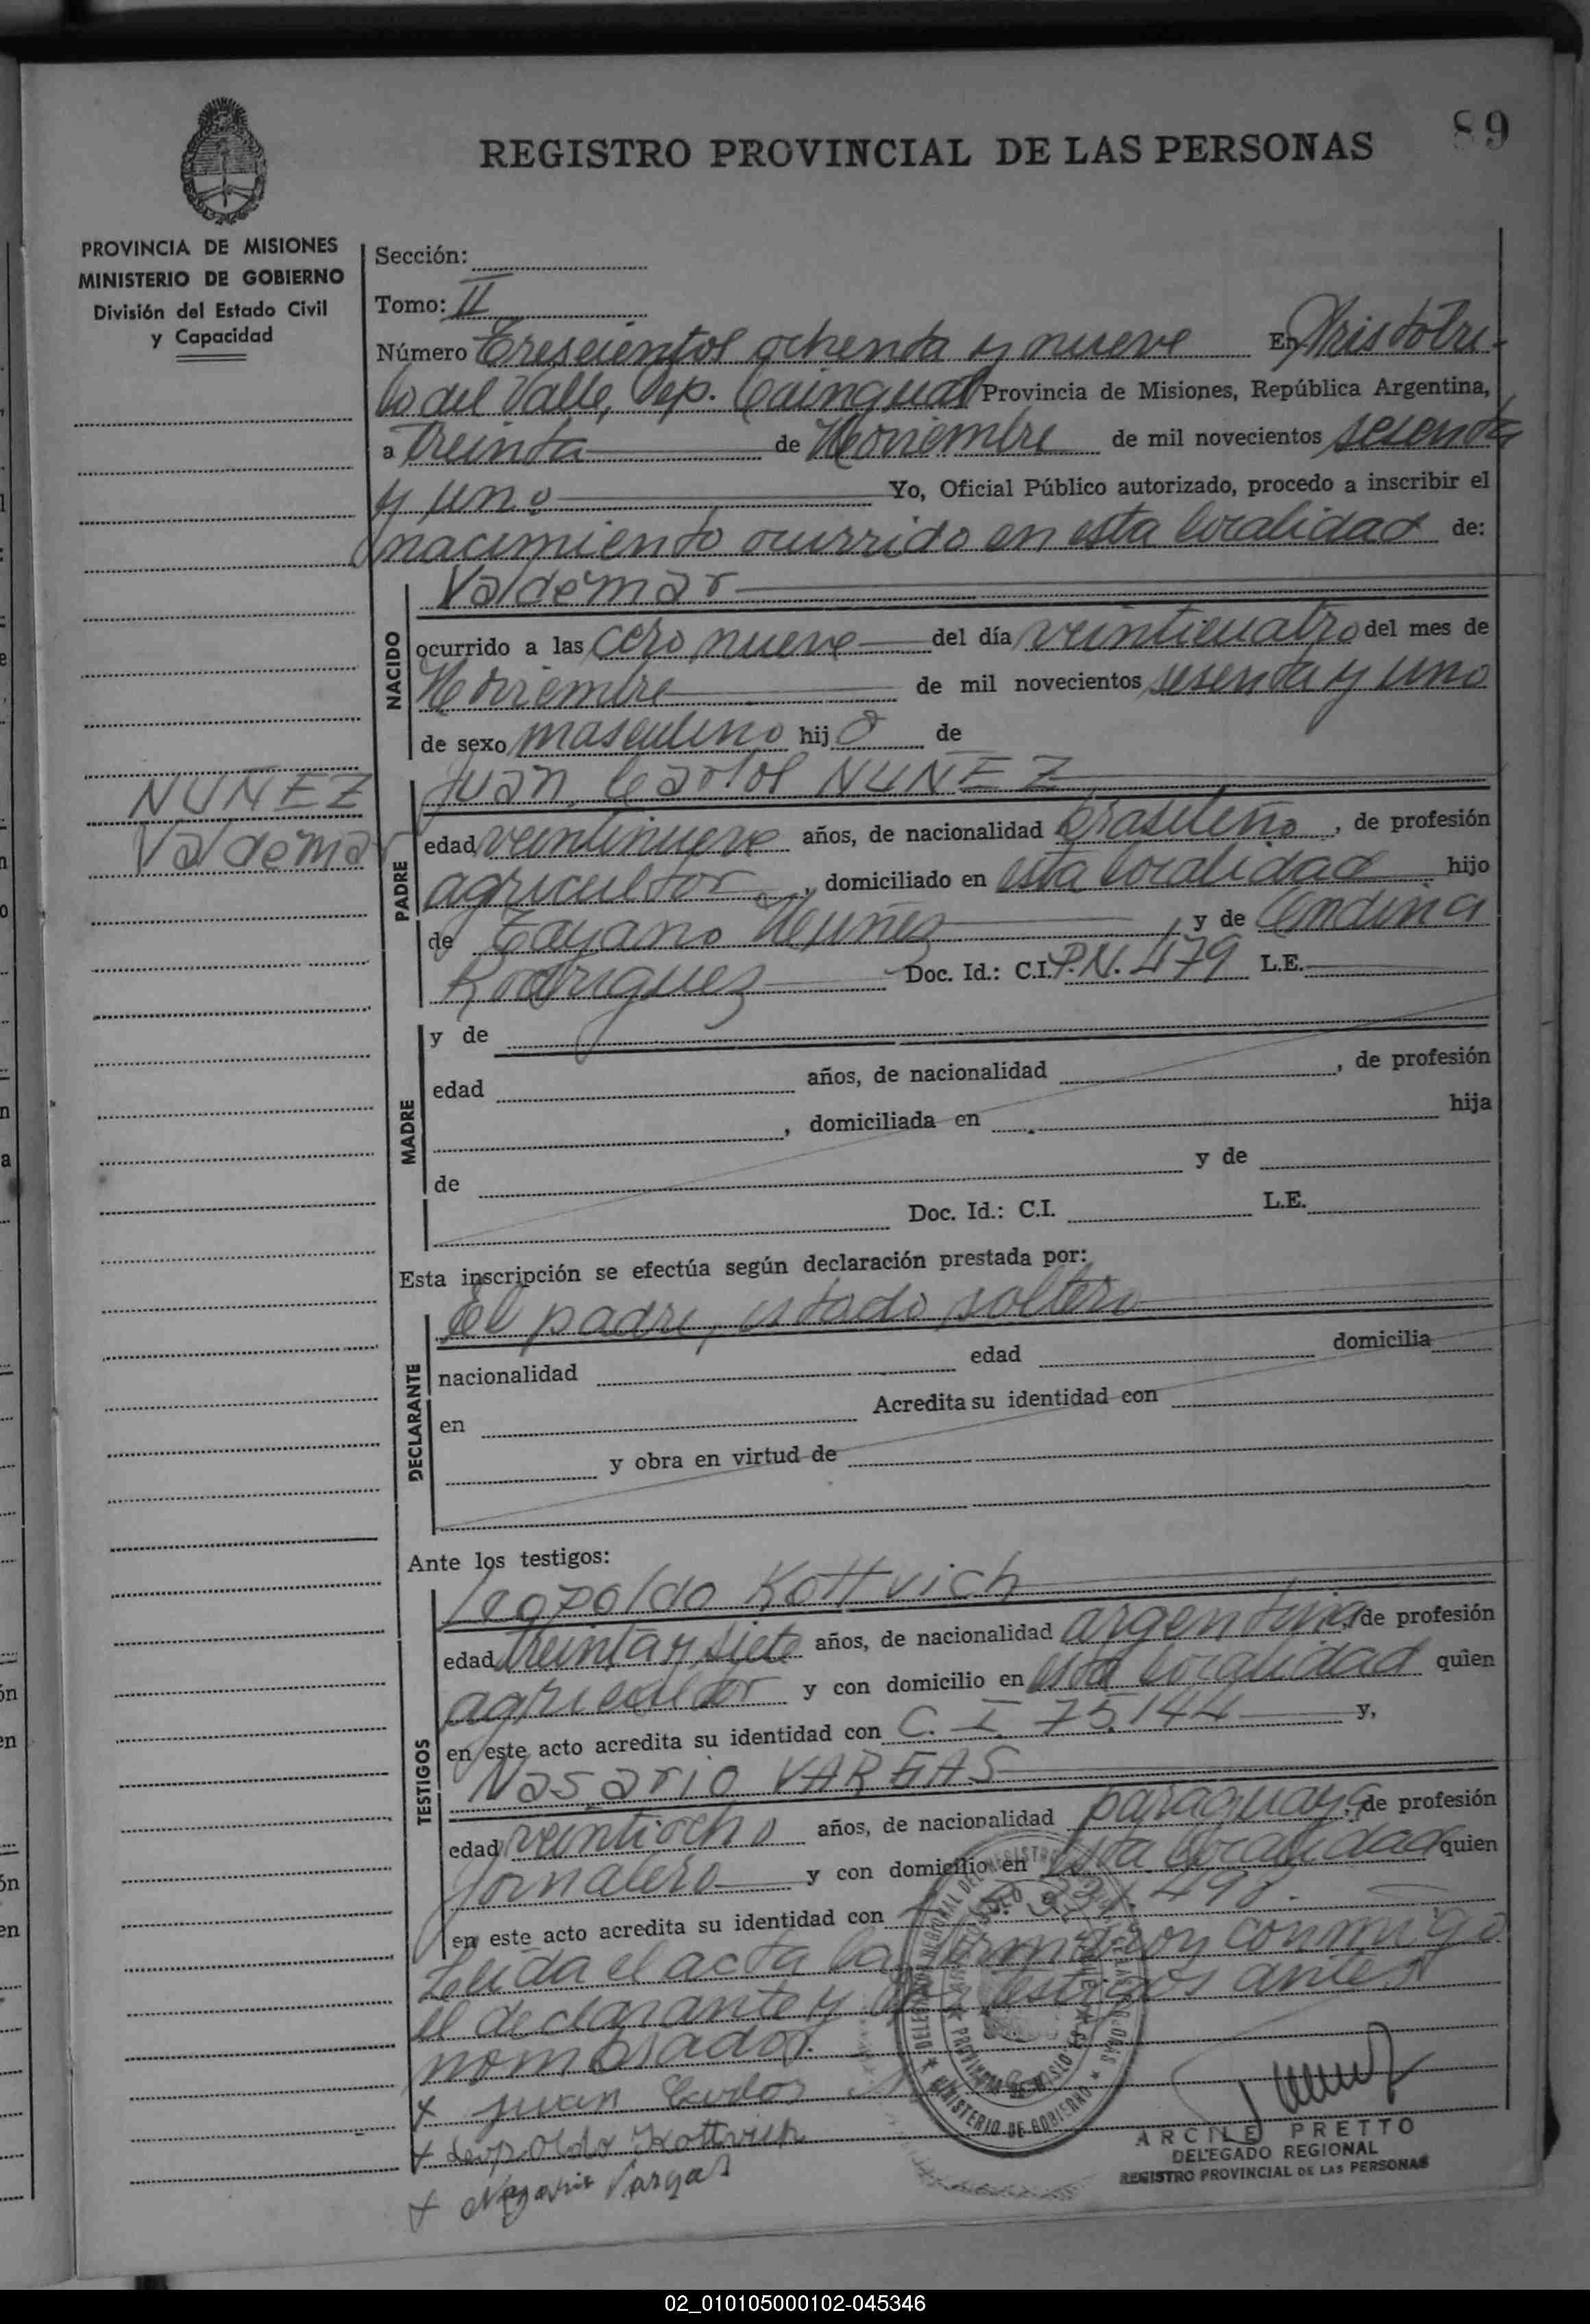 89
REGISTRO PROVINCIAL DE LAS PERSONAS
PROVINCIA DE MISIONES
MINISTERIO DE GOBIERNO
División del Estado Civil
y Capacidad
Sección:
Tomo: II
Número Trescientos ochenta y nueve En Aristóbu-
lo del Valle, Dep. Cainguás Provincia de Misiones, República Argentina,
a Treinta de Noviembre de mil novecientos sesenta
y uno Yo, Oficial Público autorizado, procedo a inscribir el
nacimiento ocurrido en esta localidad de:
NACIDO
Valdemar
ocurrido a las cero nueve del día veinticuatro del mes de
Noviembre de mil novecientos sesenta y uno
de sexo masculino hijo de
NUÑEZ
Valdemar
PADRE
Juan Carlos NUÑEZ
edad veintinueve años, de nacionalidad brasileño, de profesión
agricultor, domiciliado en esta localidad hijo
de Núñez y de
Rodriguez Doc. Id.: C.I. P.N. 479 L.E.
MADRE
y de
edad años, de nacionalidad , de profesión
, domiciliada en hija
de y de
Doc. Id.: C.I. L.E.
Esta inscripción se efectúa según declaración prestada por:
DECLARANTE
El padre, estado soltero
nacionalidad edad domicilia
en Acredita su identidad con
y obra en virtud de
Ante los testigos:
TESTIGOS
Leopoldo Kottvich
edad treinta y siete años, de nacionalidad argentina, de profesión
agricultor y con domicilio en esta localidad quien
en este acto acredita su identidad con C. I. 75.144 y,
Nasario VARGAS
edad veintiocho años, de nacionalidad paraguaya, de profesión
jornalero y con domicilio en esta localidad quien
en este acto acredita su identidad con
Leída el acta la firmaron conmigo
el declarante y los testigos antes
nombrados.
x Juan Carlos
x Leopoldo Kottvich
x Nazario Vargas
ARCILE PRETTO
DELEGADO REGIONAL
REGISTRO PROVINCIAL DE LAS PERSONAS
MINISTERIO DE GOBIERNO
02_010105000102-045346